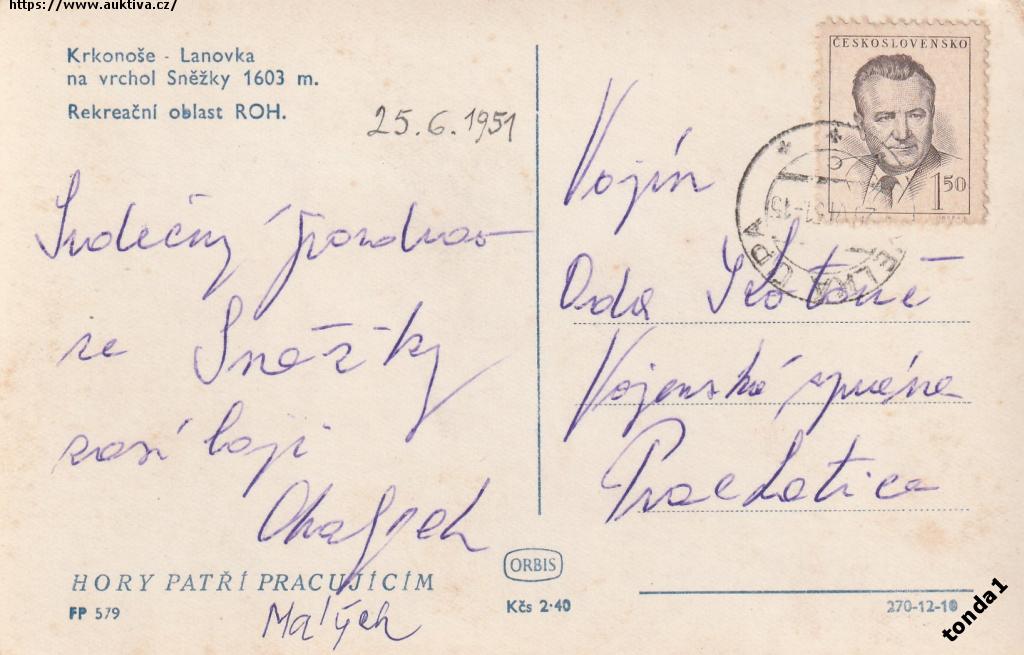 https://www.auktiva.cz/
Krkonoše - Lanovka
na vrchol Sněžky 1603 m.
Rekreační oblast ROH.
25.6.1951
Srdečný pozdrav
ze Sněžky
zasílají
HORY PATŘÍ PRACUJÍCÍM
FP 579
Malých
ČESKOSLOVENSKO
1 50
Vojín
Oda
Vojenská správa
Prachatice
ORBIS
Kčs 2·40
270-12-10
tonda1